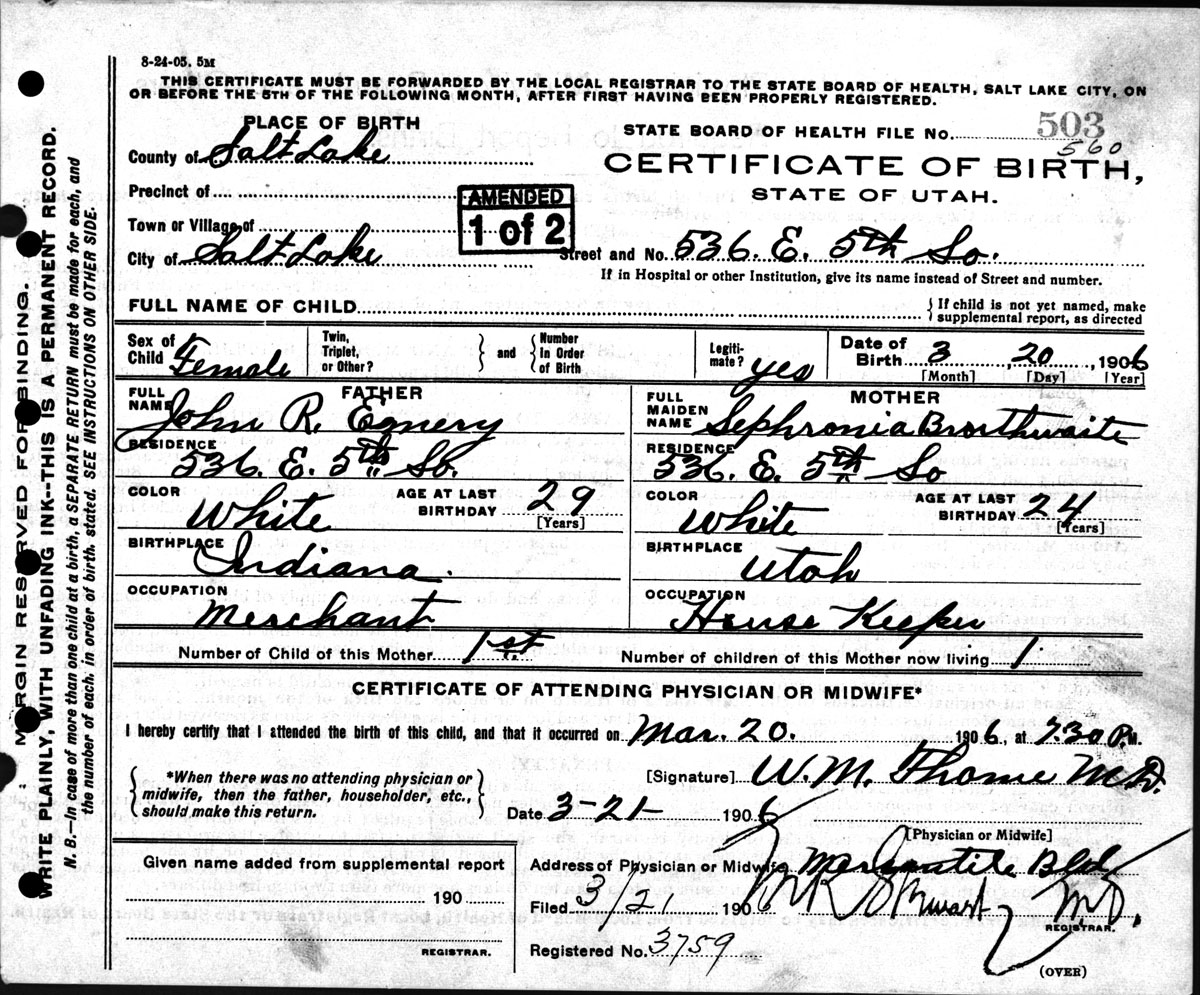 8-24-05. 5M
THIS CERTIFICATE MUST BE FORWARDED BY THE LOCAL REGISTRAR TO THE STATE BOARD OF HEALTH, SALT LAKE CITY, ON
OR BEFORE THE 5TH OF THE FOLLOWING MONTH, AFTER FIRST HAVING BEEN PROPERLY REGISTERED.
PLACE OF BIRTH
County of Salt Lake
Precinct of
Town or Village of
City of Salt Lake
AMENDED
1 of 2
STATE BOARD OF HEALTH FILE No. 503
560
CERTIFICATE OF BIRTH,
STATE OF UTAH.
Street and No. 536. E. 5th So.
If in Hospital or other Institution, give its name instead of Street and number.
FULL NAME OF CHILD
If child is not yet named, make
supplemental report, as directed
Sex of Child Female
Twin, Triplet, or Other?
and
Number In Order of Birth
Legiti-mate? yes
Date of Birth 3 20 1906
[Month] [Day] [Year]
FATHER
FULL NAME John R. Egnery
RESIDENCE
536. E. 5th So.
COLOR White
AGE AT LAST BIRTHDAY 29
[Years]
BIRTHPLACE Indiana.
OCCUPATION
Merchant
MOTHER
FULL MAIDEN NAME Sephronia Brorthwaite
RESIDENCE
536. E. 5th So
COLOR White
AGE AT LAST BIRTHDAY 24
[Years]
BIRTHPLACE
Utah
OCCUPATION
House Keeper
Number of Child of this Mother 1st
Number of children of this Mother now living 1
CERTIFICATE OF ATTENDING PHYSICIAN OR MIDWIFE*
I hereby certify that I attended the birth of this child, and that it occurred on Mar. 20. 1906, at 7.30 P.M.
*When there was no attending physician or
midwife, then the father, householder, etc.,
should make this return.
[Signature] W. M. Thome M.D.
Date 3-21- 1906
[Physician or Midwife]
Given name added from supplemental report
190
REGISTRAR.
Address of Physician or Midwife Mercantile Bld
Filed 3/21 1906 Stewart M.D.
REGISTRAR.
Registered No. 3759
(OVER)
MARGIN RESERVED FOR BINDING.
WRITE PLAINLY, WITH UNFADING INK--THIS IS A PERMANENT RECORD.
N. B.—In case of more than one child at a birth, a SEPARATE RETURN must be made for each, and
the number of each, in order of birth, stated. SEE INSTRUCTIONS ON OTHER SIDE.